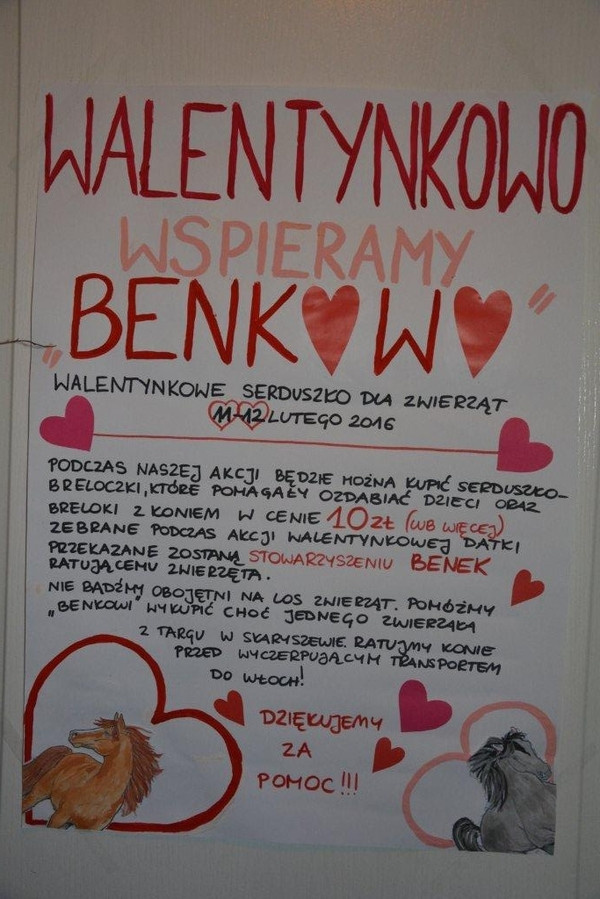 WALENTYNKOWO
WSPIERAMY
„BENKOWO"
WALENTYNKOWE SERDUSZKO DLA ZWIERZĄT
11-12 LUTEGO 2016
PODCZAS NASZEJ AKCJI BĘDZIE MOŻNA KUPIĆ SERDUSZKO-
BRELOCZKI, KTÓRE POMAGAŁY OZDABIAĆ DZIECI ORAZ
BRELOKI Z KONIEM W CENIE 10 ZŁ (LUB WIĘCEJ)
ZEBRANE PODCZAS AKCJI WALENTYNKOWEJ DATKI
PRZEKAZANE ZOSTANĄ STOWARZYSZENIU BENEK
RATUJĄCEMU ZWIERZĘTA.
NIE BĄDŹMY OBOJĘTNI NA LOS ZWIERZĄT. POMÓŻMY
„BENKOWI" WYKUPIĆ CHOĆ JEDNEGO ZWIERZAKA
Z TARGU W SKARYSZEWIE. RATUJMY KONIE
PRZED WYCZERPUJĄCYM TRANSPORTEM
DO WŁOCH!
DZIĘKUJEMY
ZA
POMOC!!!